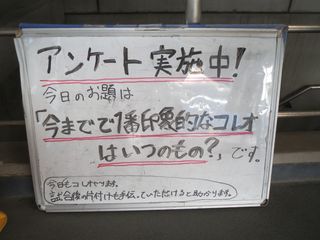 アンケート実施中!
今日のお題は
「今までで1番印象的なコレオ
はいつのもの?」です。
今日もコレオやります。
試合後の片付けも手伝っていただけると助かります。